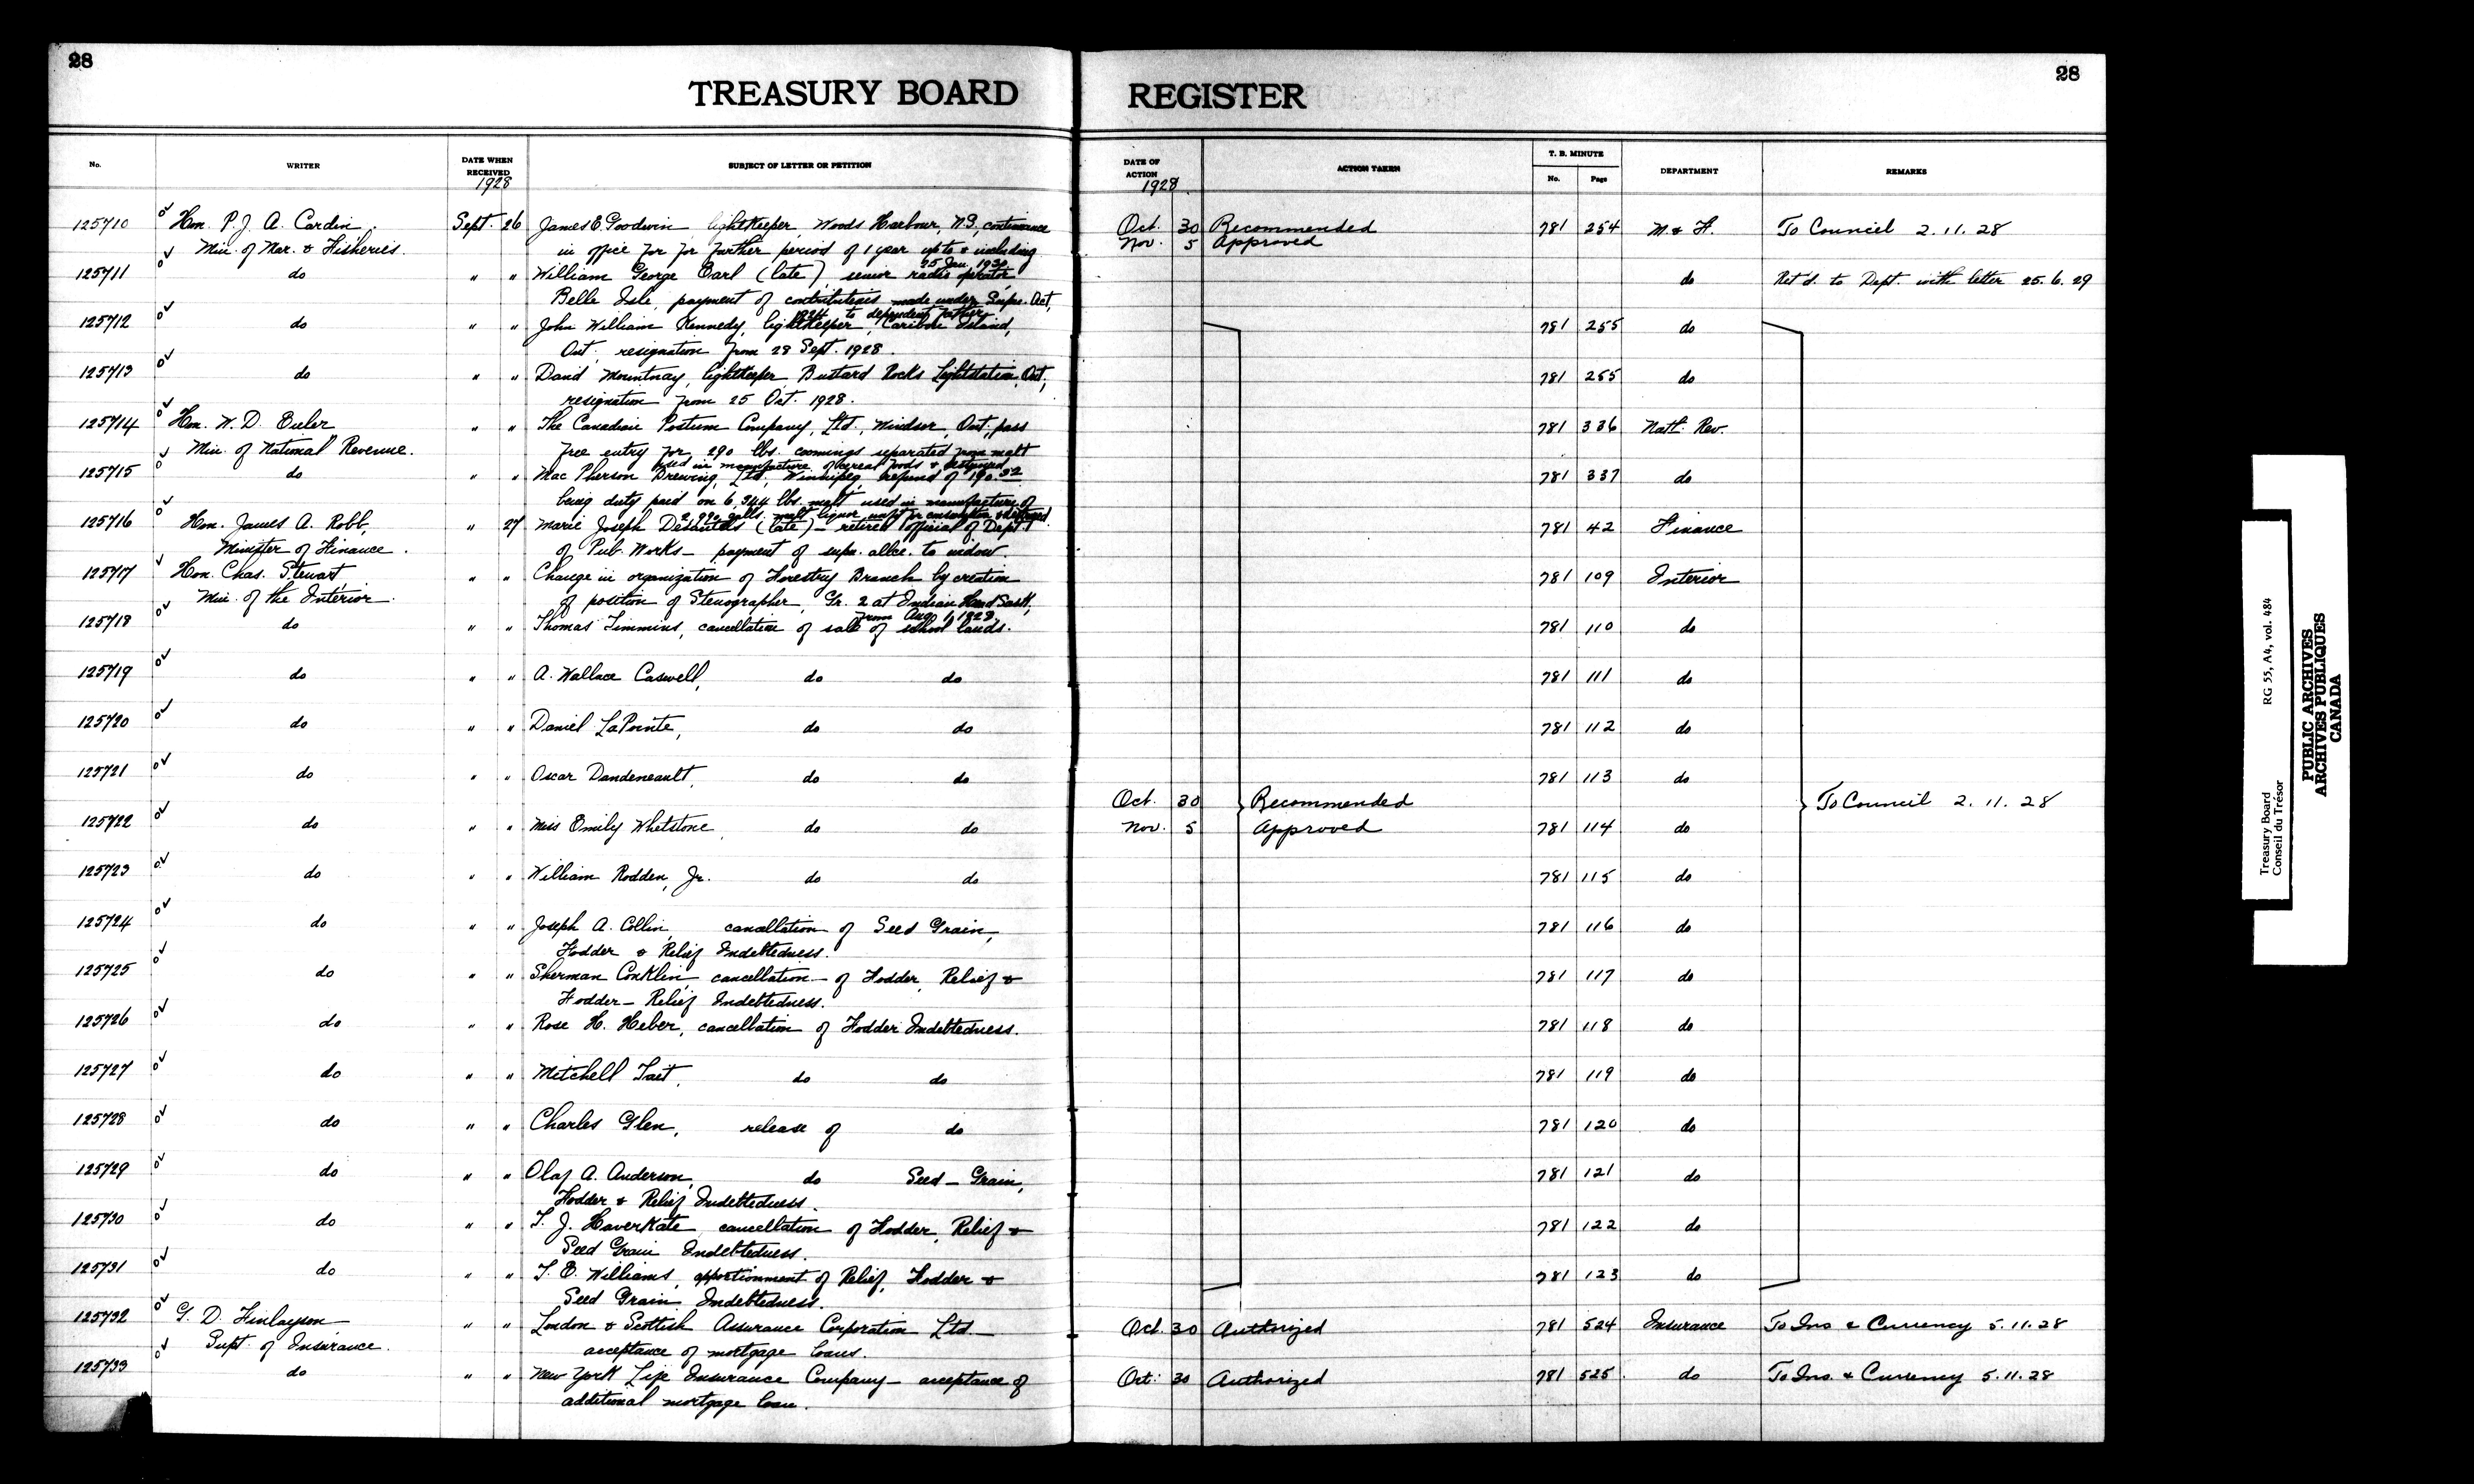 28
28
TREASURY BOARD REGISTER
No. WRITER DATE WHEN RECEIVED SUBJECT OF LETTER OR PETITION DATE OF ACTION ACTION TAKEN T. B. MINUTE No. Page DEPARTMENT REMARKS
1928 1928
125710 Hon. P. J. A. Cardin, Sept. 26 James E. Goodwin, lightkeeper, Woods Harbour, N.S., continuance Oct. 30 Recommended 781 254 M. & F. To Council 2.11.28
Min. of Mar. & Fisheries. in office for for further period of 1 year up to & including Nov. 5 Approved
25 Jan. 1930
125711 do " " William George Earl (late), senior radio operator, do Ret'd. to Dept. with letter 25.6.29
Belle Isle, payment of contributions made under Supn. Act,
1924 to dependent father
125712 do " " John William Kennedy, lightkeeper, Caribou Island, 781 255 do
Ont., resignation from 28 Sept. 1928.
125713 do " " David Mountnay, lightkeeper, Bustard Rocks Lightstation, Ont., 781 255 do
resignation from 25 Oct. 1928.
125714 Hon. W. D. Euler " " The Canadian Postum Company, Ltd., Windsor, Ont., pass 781 336 Natl. Rev.
Min. of National Revenue. free entry for 290 lbs. coomings separated from malt
used in manufacture of cereal foods & destroyed
125715 do " " MacPherson Brewing, Ltd., Winnipeg, refund of 190.32 781 337 do
being duty paid on 6,344 lbs. malt used in manufacture of
2,990 galls. malt liquor unfit for consumption & destroyed
125716 Hon. James A. Robb, " 27 Marie Joseph Desautels (late) – retired official of Dept. 781 42 Finance
Minister of Finance. of Pub. Works – payment of supn. allce. to widow.
125717 Hon. Chas. Stewart, " " Change in organization of Forestry Branch by creation 781 109 Interior
Min. of the Interior. of position of Stenographer, Gr. 2 at Indian Head Sask.,
from Aug. 1, 1928.
125718 do " " Thomas Timmins, cancellation of sale of school lands. 781 110 do
125719 do " " A. Wallace Caswell, do do 781 111 do
125720 do " " Daniel LaPointe, do do 781 112 do
125721 do " " Oscar Dandeneault, do do 781 113 do
Oct. 30 Recommended To Council 2.11.28
125722 do " " Miss Emily Whetstone, do do Nov. 5 Approved 781 114 do
125723 do " " William Rodden, Jr. do do 781 115 do
125724 do " " Joseph A. Collin, cancellation of Seed Grain, 781 116 do
Fodder & Relief Indebtedness.
125725 do " " Sherman Conklin, cancellation of Fodder, Relief & 781 117 do
Fodder – Relief Indebtedness.
125726 do " " Rose H. Heber, cancellation of Fodder Indebtedness. 781 118 do
125727 do " " Mitchell Tait, do do 781 119 do
125728 do " " Charles Glen, release of do 781 120 do
125729 do " " Olaf A. Anderson, do Seed – Grain, 781 121 do
Fodder & Relief Indebtedness.
125730 do " " T. J. Haverkate, cancellation of Fodder, Relief & 781 122 do
Seed Grain Indebtedness.
125731 do " " T. E. Williams, apportionment of Relief, Fodder & 781 123 do
Seed Grain Indebtedness.
125732 G. D. Finlayson, " " London & Scottish Assurance Corporation Ltd. – Oct. 30 Authorized 781 524 Insurance To Ins & Currency 5.11.28
Supt. of Insurance. acceptance of mortgage loans.
125733 do " " New York Life Insurance Company – acceptance of Oct. 30 Authorized 781 525 do To Ins. & Currency 5.11.28
additional mortgage loan.
Treasury Board RG 55, A4, vol. 484
Conseil du Trésor
PUBLIC ARCHIVES
ARCHIVES PUBLIQUES
CANADA